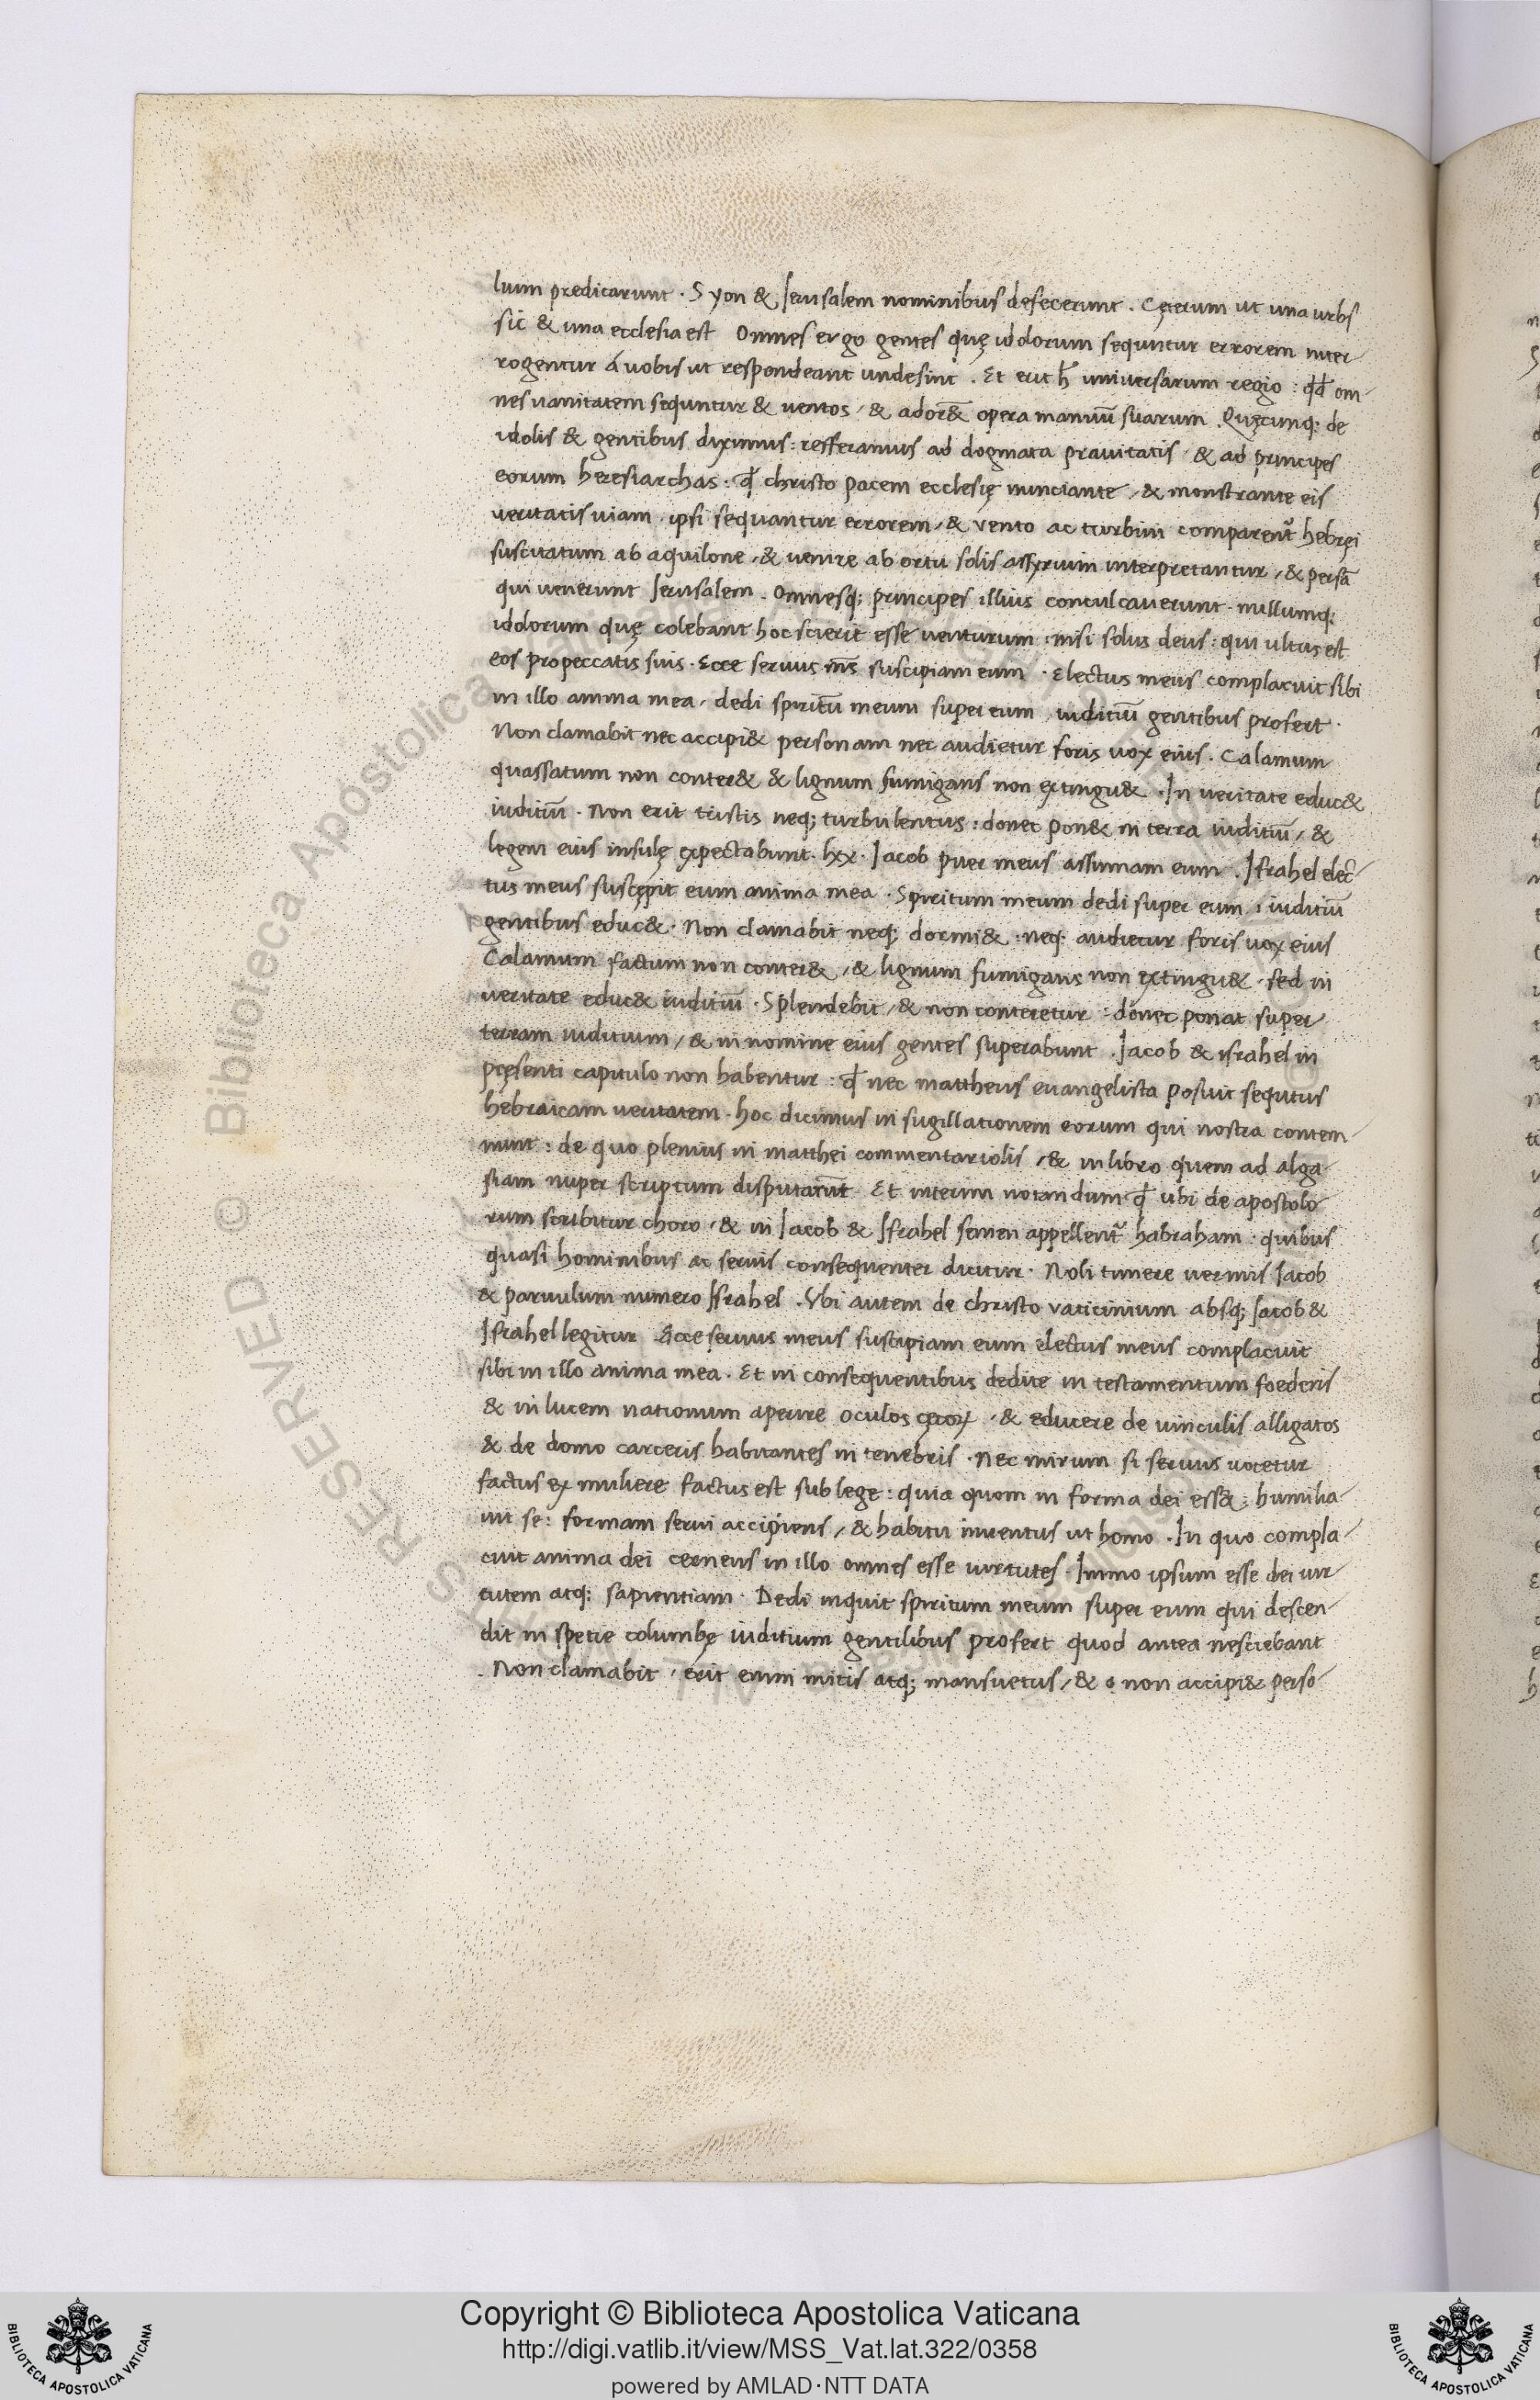 luim predicarunt · Syon & Jerusalem nominibus defecerunt . Cęterum ut una urbs
sic & una ecclesia est Omnes ergo gentes quę idolorum sequntur errorem inter
rogentur á vobis ut respondeant unde sint . Et erit universarum regio : om
nes vanitatem sequntur & ventos / & opera manuū suarum . Quęcunq; de
idolis & gentibus diximus : refferamus ad dogmata pravitatis / & ad principes
eorum heresiarchas : christo pacem ecclesię nunciante / & monstrante eis
veritatis viam ipsi sequantur errorem / & vento ac turbini comparent hebręi
suscitatum ab aquilone / & venire ab ortu solis assyrium interpretantur / & persā
qui venerunt Jerusalem . Omnesq; principes illius conculcaverunt · nullumq;
idolorum quę colebant hoc scierit esse venturum : nisi solus deus : qui ultus est
eos pro peccatis suis · Ecce servus ms suscipiam eum · Electus meus complacuit sibi
in illo anima mea / dedi spiritū meum super eum , iuditiū gentibus profert ·
Non clamabit nec accipi& personam nec audietur foris vox eius . Calamum
quassatum non conter& & lignum fumigans non extingu& · In veritate educ&
iuditiū · Non erit tristis neq; turbulentus : donec pon& in terra iuditiū / &
legem eius insulę expectabunt . lxx · Jacob puer meus assumam eum . Jsrahel elec
tus meus suscępit eum anima mea · Spiritum meum dedi super eum , iuditiū
gentibus educ& · Non clamabit neq; dormi& : neq; audietur foris vox eius
Calamum factum non conter& / & lignum fumigans non extingu& · sed in
veritate educ& iuditiū · Splendebit / & non conteretur : donec ponat super
terram iuditium / & in nomine eius gentes superabunt . Jacob & israhel in
pręsenti capitulo non habentur : nec mattheus evangelista posuit sequtus
hebraicam veritatem · hoc dicimus in sugillationem eorum qui nostra contem
nunt : de quo plenius in matthei commentariolis / & in libro quem ad alga
siam nuper scriptum disputarūt Et interim notandum ubi de apostolo
rum scribitur choro / & in Jacob & Jsrahel semen appellent habraham : quibus
quasi hominibus ac servis consequenter dicitur · Noli timere vermis Jacob
& parvulum numero Jsrahel . Vbi autem de christo vaticinium absq; Jacob &
Jsrahel legitur Ecce servus meus suscipiam eum electus meus complacuit
sibi in illo anima mea . Et in consequentibus dedite in testamentum foederis
& in lucem nationum aperire oculos / & educere de vinculis alligatos
& de domo carceris habitantes in tenebris · Nec mirum si servus vocetur
factus ex muliere factus est sub lege : quia quom in forma dei ess& : humilia
vit se : formam servi accipiens / & habitu inventus ut homo . In quo compla
cuit anima dei cernens in illo omnes esse virtutes . Immo ipsum esse dei vir
tutem atq; sapientiam · Dedi inquit spiritum meum super eum qui descen
dit in spetie columbę iuditium gentilibus profert quod antea nesciebant
. Non clamabit / erit enim mitis atq; mansuetus / & non accipi& perso
Copyright © Biblioteca Apostolica Vaticana
http://digi.vatlib.it/view/MSS_Vat.lat.322/0358
powered by AMLAD·NTT DATA
BIBLIOTECA APOSTOLICA VATICANA
BIBLIOTECA APOSTOLICA VATICANA